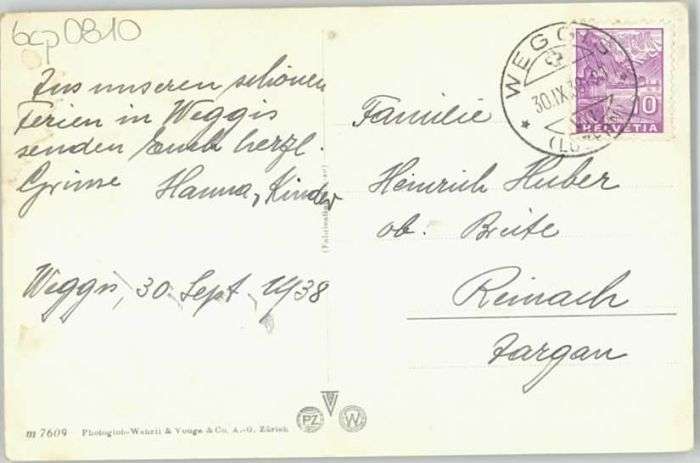 bcp0810
Aus unseren schönen
Ferien in Weggis
senden Euch herzl.
Grüsse Hanna, Kinder
Weggis, 30. Sept. 1938
Familie
Heinrich Huber
ob. Breite
Reinach
Aargau
WEGGIS
30.IX.38
(LUZERN)
10
HELVETIA
m 7609 Photoglob-Wehrli & Vouga & Co. A.-G. Zürich
PZ W